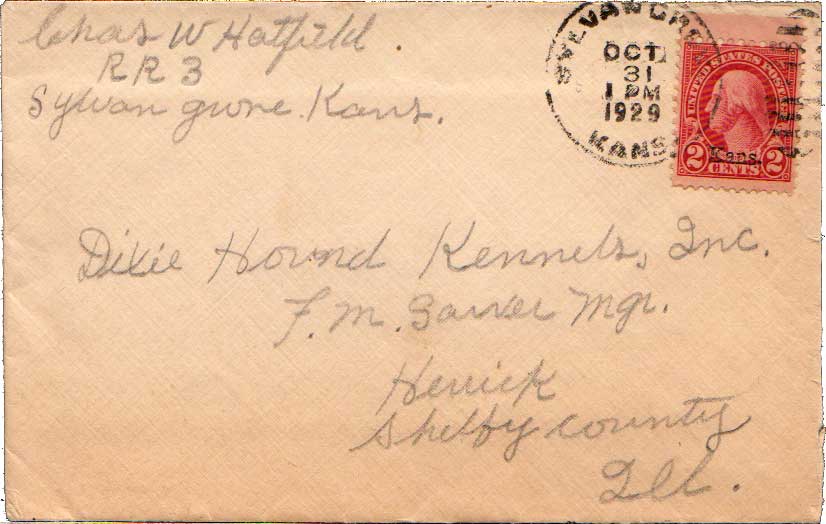 Chas W Hatfield
RR 3
Sylvan grove. Kans.
SYLVAN GRO
OCT
31
1 PM
1929
KANS.
UNITED STATES POSTAGE
Kans.
2 CENTS 2
Dixie Hound Kennels, Inc.
F. M. Sarver Mgr.
Herrick
Shelby County
Ill.